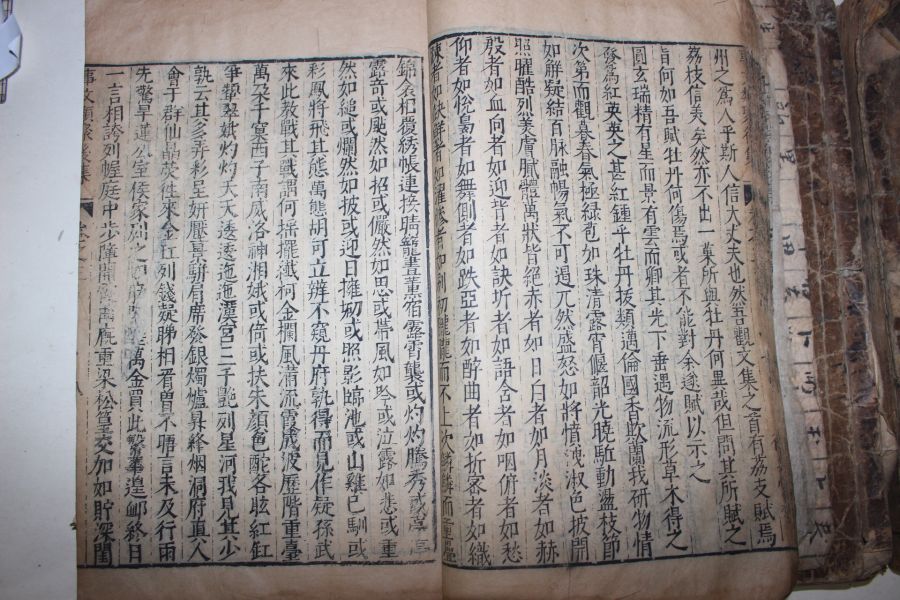 州之爲人乎斯人信大丈夫也然吾觀文集之首有荔支賦焉
荔枝信美矣然亦不出一菓所與牡丹何異哉但問其所賦之
旨何如吾賦牡丹何傷焉或者不能對余遂賦以示之
圓玄瑞精有星而景有雲而卿其光下垂遇物流形草木得之
發爲紅英英之甚紅鍾乎牡丹拔類邁倫國香欺蘭我研物情
次第而觀暮春氣極綠苞如珠清露宵偃韶光曉駈動盪枝節
如解凝結百脉融暢氣不可遏兀然盛怒如將憤洩淑色披開
照曜酷烈美膚膩體萬狀皆絕赤者如日白者如月淡者如赫
殷者如血向者如迎背者如訣坼者如語含者如咽俯者如愁
仰者如悅裊者如舞側者如跌亞者如醉曲者如折密者如織
疎者如缺鮮者如濯慘者如別初朧朧而下上次鱗鱗而重疊
錦衾相覆綉帳連接晴籠晝薰宿露宵裛或灼灼騰秀或亭亭
露奇或颭然如招或儼然如思或帶風如吟或泣露如悲或重
然如縋或爛然如披或迎日擁砌或照影臨池或山雞已馴或
彩鳳將飛其態萬態胡可立辨不窺丹府孰得而見作疑孫武
來此教戰其戰謂何搖搖纖柯金欄風滿流霞成波歷階重臺
萬朶千窠西子南威洛神湘娥或倚或扶朱顏色酡各眩紅釭
爭顰翠娥灼灼夭夭逶逶迤迤漢宮三千艷列星河我見其少
孰云其多弄彩呈妍壓景駢肩席發銀燭爐昇絳烟洞府真人
會于群仙晶熒往來金釭列錢凝睇相看曾不晤言未及行雨
先驚旱蓮公室侯家列之如麻萬金買此繁華遑卹終日
一言相誇列幄庭中步障開霞曲廡重梁松篁交加如貯深閨
事文類聚後集